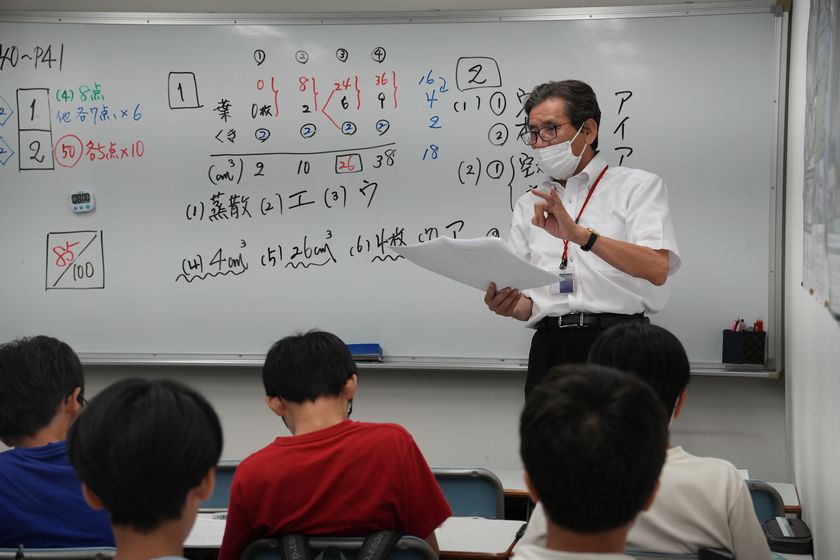 40~P41
1
2
(4) 8点
他各7点×6
50 各5点×10
85/100
1
① ② ③ ④
0 8 24 36
葉 0枚 2 6 9
くき ② ② ② ②
(cm³) 2 10 26 38
16
4 2
2
18
(1) 蒸散 (2) エ (3) ウ
(4) 4cm³ (5) 26cm³ (6) 4枚 (7) ア
2
(1) ① 空 ア
② イ
(2) ① 空 ア